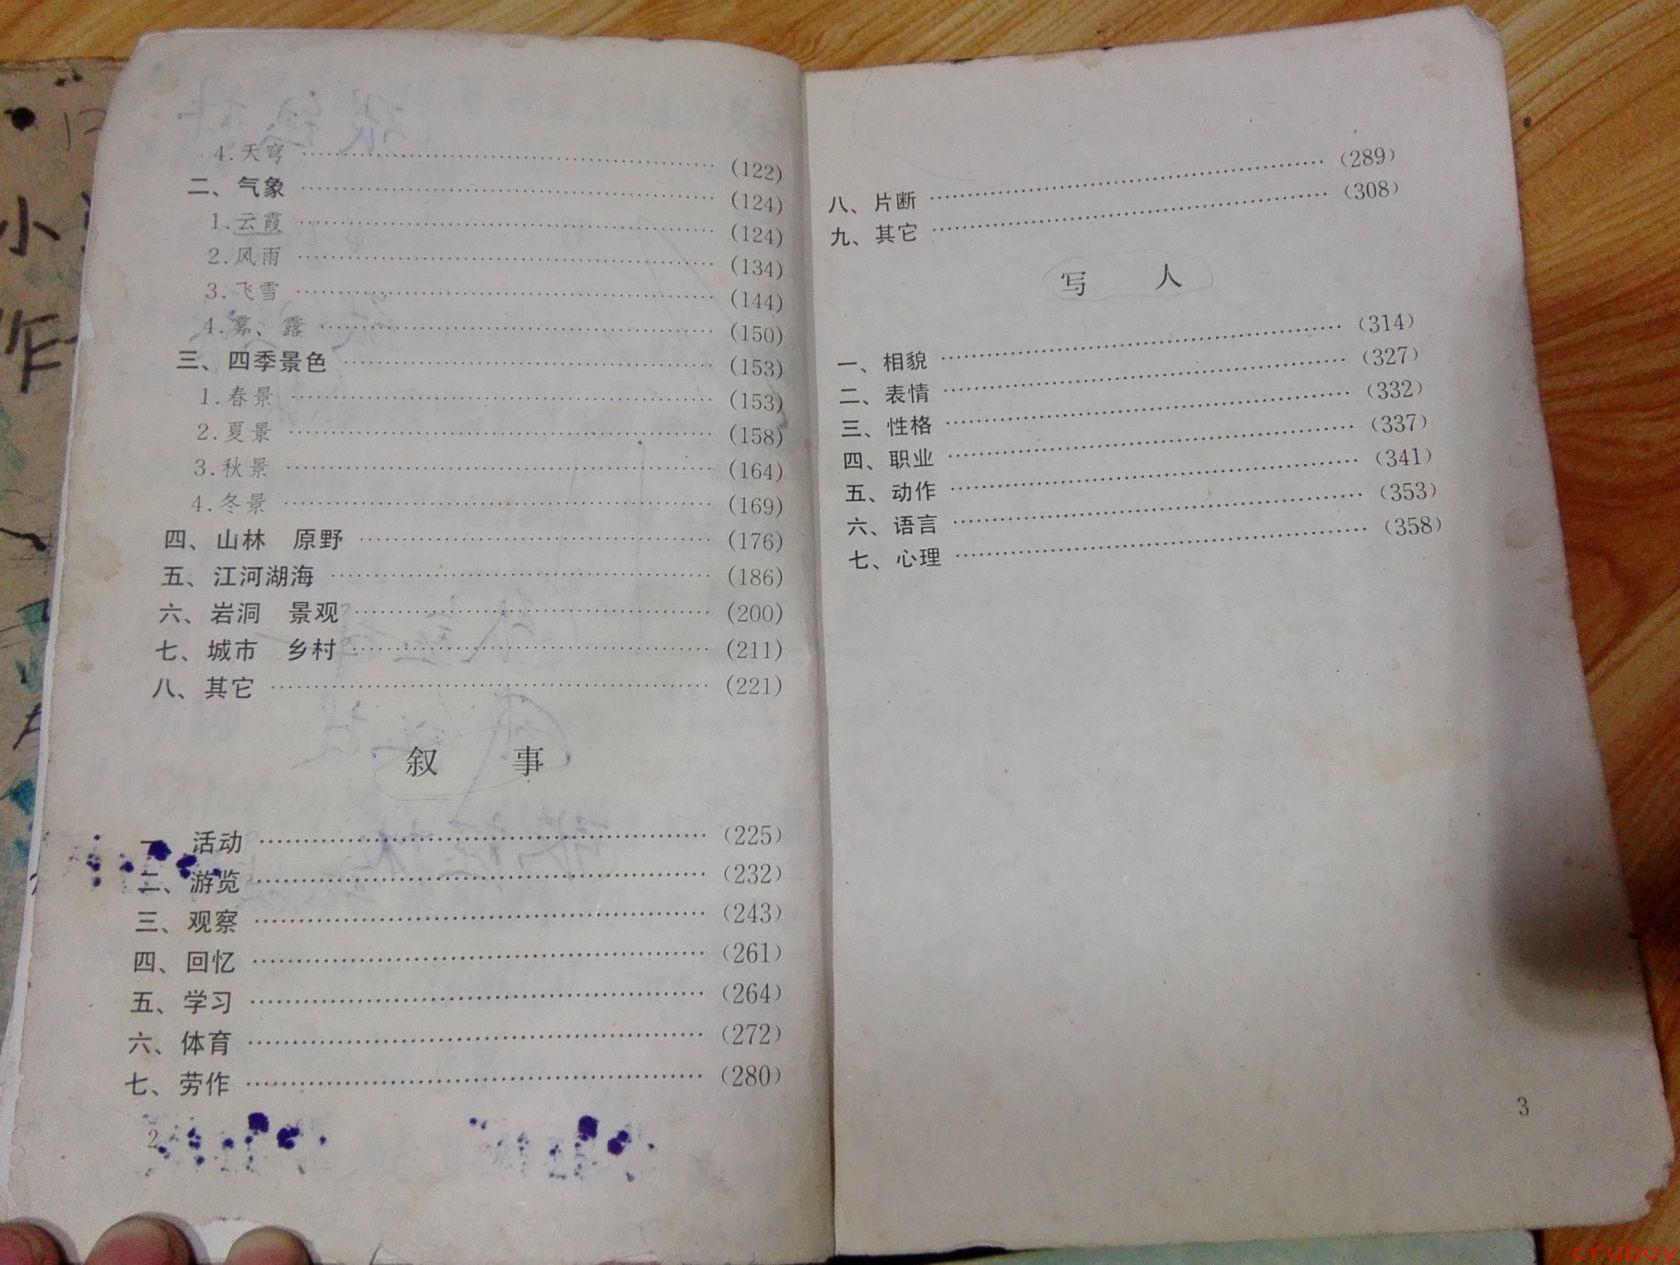 4.天穹 ……………………………… (122)
二、气象 ……………………………… (124)
1.云霞 ……………………………… (124)
2.风雨 ……………………………… (134)
3.飞雪 ……………………………… (144)
4.雾、露 ……………………………… (150)
三、四季景色 ……………………………… (153)
1.春景 ……………………………… (153)
2.夏景 ……………………………… (158)
3.秋景 ……………………………… (164)
4.冬景 ……………………………… (169)
四、山林　原野 ……………………………… (176)
五、江河湖海 ……………………………… (186)
六、岩洞　景观 ……………………………… (200)
七、城市　乡村 ……………………………… (211)
八、其它 ……………………………… (221)
叙　事
一、活动 ……………………………… (225)
二、游览 ……………………………… (232)
三、观察 ……………………………… (243)
四、回忆 ……………………………… (261)
五、学习 ……………………………… (264)
六、体育 ……………………………… (272)
七、劳作 ……………………………… (280)
2
八、片断 ……………………………… (289)
九、其它 ……………………………… (308)
写　人
一、相貌 ……………………………… (314)
二、表情 ……………………………… (327)
三、性格 ……………………………… (332)
四、职业 ……………………………… (337)
五、动作 ……………………………… (341)
六、语言 ……………………………… (353)
七、心理 ……………………………… (358)
3
小
作
cruboy